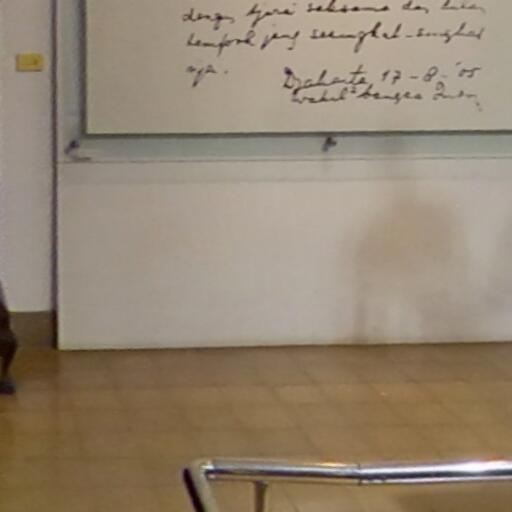 dengan tjara saksama dan dalam
tempoh jang sesingkat-singkat
nja.
Djakarta, 17-8-'05
Wakil² bangsa Indon